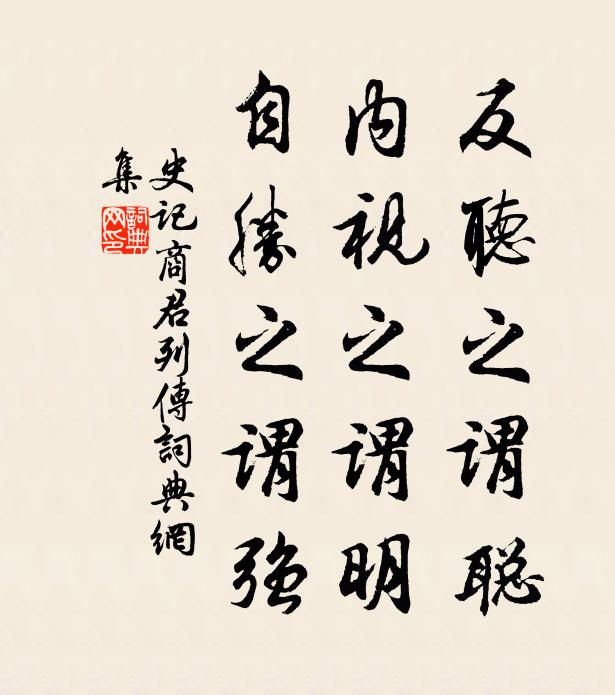 反聽之谓聪
内视之谓明
自勝之谓强
史记商君列傳詞典網
集
詞典
网印